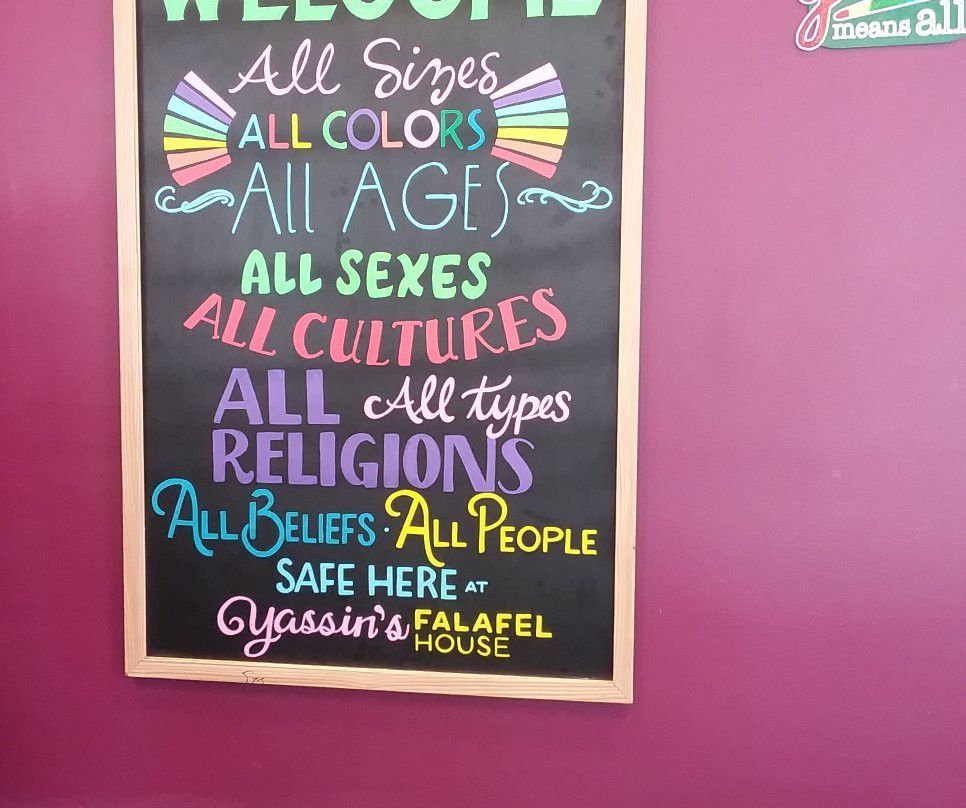 WELCOME
All Sizes
ALL COLORS
All AGES
ALL SEXES
ALL CULTURES
ALL All types
RELIGIONS
ALL BELIEFS · ALL PEOPLE
SAFE HERE AT
Yassin's FALAFEL
HOUSE
means all